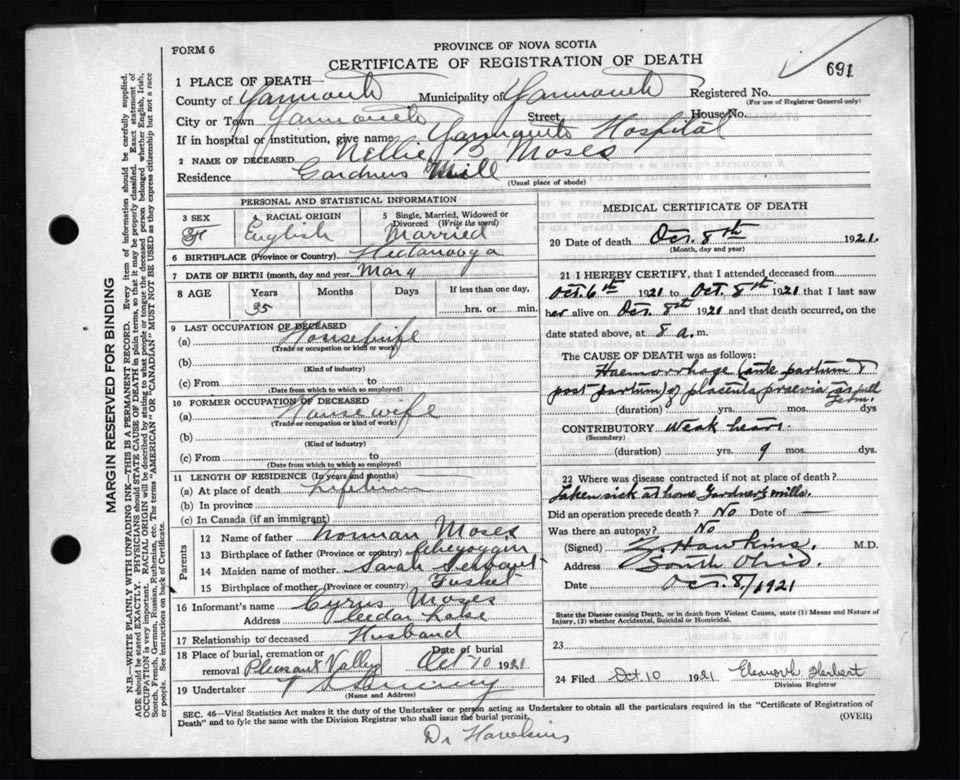 FORM 6
PROVINCE OF NOVA SCOTIA
CERTIFICATE OF REGISTRATION OF DEATH
691
1 PLACE OF DEATH—
County of Yarmouth Municipality of Yarmouth Registered No.
(For use of Registrar General only)
City or Town Yarmouth Street House No.
If in hospital or institution, give name Yarmouth Hospital
2 NAME OF DECEASED Nellie B Moses
Residence Gardners Mill
(Usual place of abode)
PERSONAL AND STATISTICAL INFORMATION
3 SEX 4 RACIAL ORIGIN 5 Single, Married, Widowed or Divorced (Write the word)
F English Married
6 BIRTHPLACE (Province or Country) Hectanooga
7 DATE OF BIRTH (month, day and year
8 AGE Years Months Days If less than one day,
35 hrs. or min.
9 LAST OCCUPATION OF DECEASED
(a) Housewife
(Trade or occupation or kind or work)
(b)
(Kind of industry)
(c) From to
(Date from which to which so employed)
10 FORMER OCCUPATION OF DECEASED
(a) Housewife
(Trade or occupation or kind of work)
(b)
(Kind of industry)
(c) From to
(Date from which to which so employed)
11 LENGTH OF RESIDENCE (In years and months)
(a) At place of death Lifetime
(b) In province
(c) In Canada (if an immigrant)
Parents
12 Name of father Norman Moses
13 Birthplace of father (Province or country)
14 Maiden name of mother Sarah
15 Birthplace of mother (Province or country) Tusket
16 Informant's name Cyrus Moses
Address Lake
17 Relationship to deceased Husband
18 Place of burial, cremation or removal Pleasant Valley Date of burial Oct 10 1921
19 Undertaker
(Name and Address)
MEDICAL CERTIFICATE OF DEATH
20 Date of death Oct. 8th 1921.
(Month, day and year)
21 I HEREBY CERTIFY, that I attended deceased from
Oct. 6th 1921 to Oct. 8th 1921 that I last saw
her alive on Oct. 8th 1921 and that death occurred, on the
date stated above, at 8 a.m.
The CAUSE OF DEATH was as follows:
Haemorrhage (ante partum &
post partum) of placenta praevia at full term.
(duration) yrs. mos. dys
CONTRIBUTORY Weak heart.
(Secondary)
(duration) yrs. 9 mos. dys.
22 Where was disease contracted if not at place of death?
Taken sick at home Gardner's mills.
Did an operation precede death? No Date of —
Was there an autopsy? No
(Signed) Hawkins. M.D.
Address South Ohio.
Date Oct. 8/1921
State the Disease causing Death, or in death from Violent Causes, state (1) Means and Nature of
Injury, (2) whether Accidental, Suicidal or Homicidal.
23
24 Filed Oct 10 1921 Herbert
Division Registrar
SEC. 46—Vital Statistics Act makes it the duty of the Undertaker or person acting as Undertaker to obtain all the particulars required in the "Certificate of Registration of
Death" and to fyle the same with the Division Registrar who shall issue the burial permit.
(OVER)
Dr Hawkins
MARGIN RESERVED FOR BINDING
N.B.—WRITE PLAINLY WITH UNFADING INK—THIS IS A PERMANENT RECORD. Every item of information should be carefully supplied.
AGE should be stated EXACTLY. PHYSICIANS should STATE CAUSE OF DEATH in plain terms, so that it may be properly classified. Exact statement of
OCCUPATION is very important. RACIAL ORIGIN will be described by stating to what people or tongue the deceased person belonged whether English, Irish,
Scotch, French, German, Russian, Ruthenian, etc. The terms "AMERICAN" or "CANADIAN" MUST NOT BE USED as they express citizenship but not a race
or people. See instructions on back of Certificate.